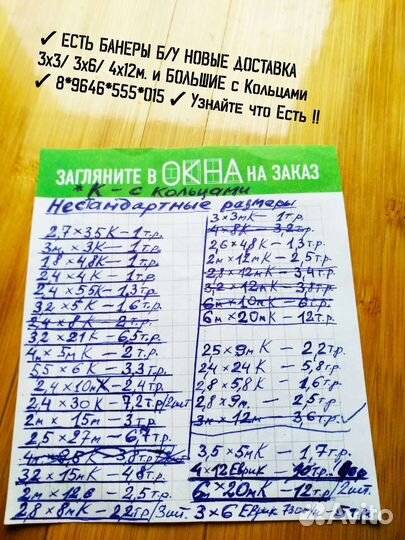 ✓ ЕСТЬ БАНЕРЫ Б/У НОВЫЕ ДОСТАВКА
3х3/ 3х6/ 4х12м. и БОЛЬШИЕ с Кольцами
✓ 8*9646*555*015 ✓ Узнайте что Есть !!
ЗАГЛЯНИТЕ В ОКНА НА ЗАКАЗ
*К - с кольцами
Нестандартные размеры
2,7 × 3,5К - 1т.р.
3м × 3К - 1т.р.
1,8 × 4,8К - 1т.р.
2,4 × 4К - 1т.р.
2,4 × 5,5К - 1,3т.р.
3,2 × 5К - 1,6т.р.
2,4 × 8К - 2т.р.
3,2 × 21К - 6,5т.р.
4м × 5мК - 2т.р.
5,5 × 6К - 3,3т.р.
2,4 × 10мК - 2,4т.р.
2,4 × 30К - 7,2т.р/2шт
2м × 15м - 3т.р.
2,5 × 27м - 6,7т.р.
4м × 9,5К - 3,8т.р.
3,2 × 15мК - 4,8т.р.
2м × 12,6 - 2,5т.р.
2,8 × 8мК - 2,2т.р/3шт.
3 × 3мК - 1т.р.
4 × 8К - 3,2т.р.
2,6 × 4,8К - 1,3т.р.
2м × 12мК - 2,5т.р.
2,8 × 12мК - 3,4т.р.
3,2 × 12мК - 3,8т.р.
6м × 10мК - 6т.р.
6м × 20мК - 12т.р.
2,5 × 9мК - 2,2т.р.
2,4 × 24К - 5,8т.р.
2,8 × 5,8К - 1,6т.р.
2,8 × 9м. - 2,5т.р.
3м × 12м - 3,6т.р.
3,5 × 5мК - 1,7т.р.
4 × 12 Еврик - 10т.р.
6м × 20мК - 12т.р/2шт.
3 × 6 Еврик 730г/м -
Avito